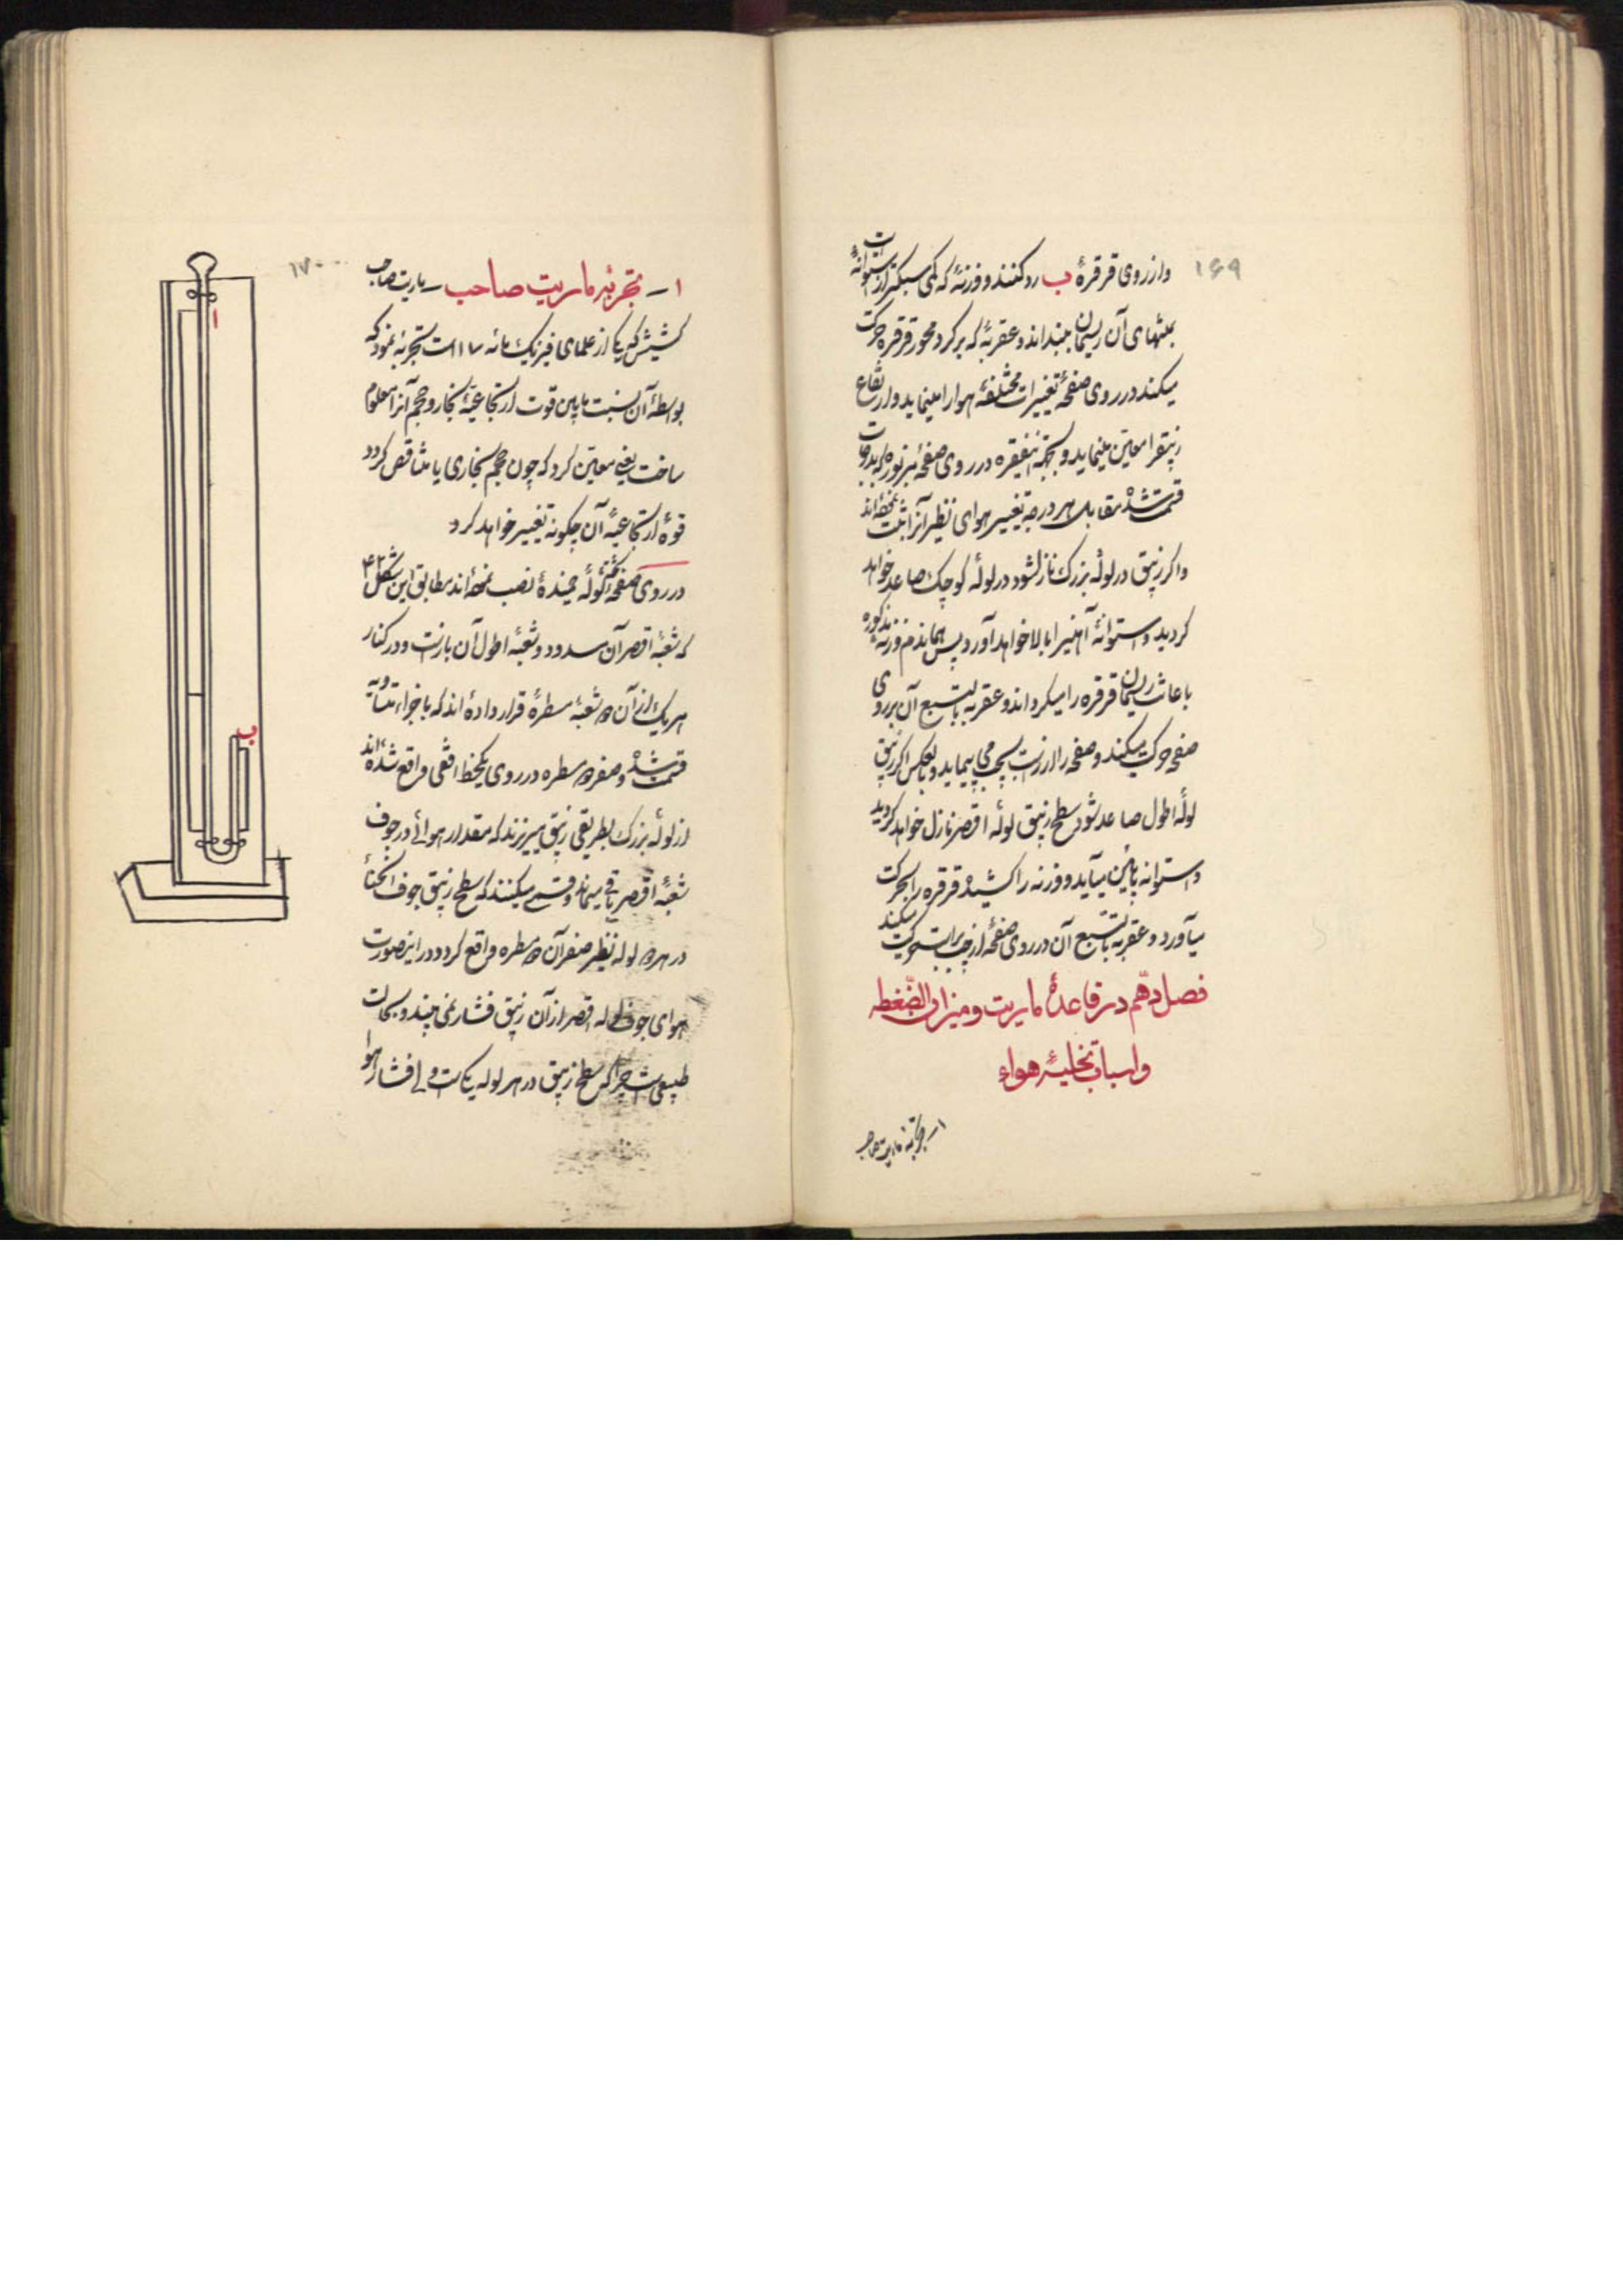 ۱۶۹
و از روی قرقرهٔ ب رد کنند و وزنهٔ که کمی سبکتر از استوانهٔ است
بمنتهای آن ریسمان ببنداند و عقربهٔ که بر گرد محور قرقره حرکت
میکند در روی صفحه تغییرات مختلفهٔ هوا را مینماید و ارتفاع
زیبق را معین مینماید و بجهة اینفقره در روی صفحهٔ مزبوره که بدرجات
قسمت شده مقابل هر درجه تغییر هوای نظیر آنرا ثبت نموده‌اند
و اگر زیبق در لولهٔ بزرگ نازل شود در لولهٔ کوچک صاعد خواهد
گردید و استوانهٔ آهنی را بالا خواهد آورد پس هماندم وزنهٔ مذکوره
باعانت ریسمان قرقره را میگرداند و عقربه بالتبع آن بر روی
صفحه حرکت میکند و صفحه را از راست بچپ می پیماید و بالعکس اگر زیبق
لولهٔ اطول صاعد شود سطح زیبق لولهٔ اقصر نازل خواهد گردید
و استوانه پائین میآید و وزنه را کشیده قرقره را بحرکت
میآورد و عقربه بالتبع آن در روی صفحه از چپ براست حرکت میکند
فصل دهم در قاعدهٔ ماریت و میزان الضغطه
و اسباب تخلیهٔ هواء
۱ـ تجربهٔ ماریت صاحب
۱۷۰
۱ـ تجربهٔ ماریت صاحب ـ ماریت صاحب
کشیش که یکی از علمای فیزیک مائه ۱۷ است تجربه نمود که
بواسطهٔ آن نسبت مابین قوت ارتجاعیهٔ بخار و حجم آنرا معلوم
ساخت یعنی معین کرد که چون حجم بخاری یا متناقص گردد
قوهٔ ارتجاعیهٔ آن چگونه تغییر خواهد کرد
در روی صفحه تخته لولهٔ خمیدهٔ نصب نموده‌اند مطابق این شکل ۴۲
که شعبهٔ اقصر آن مسدود و شعبهٔ اطول آن بازست و در کنار
هر یک از آن دو شعبهٔ مسطرهٔ قرار داده‌اند که باجزاء متساویه
قسمت شده و صفر دو مسطره در روی یکخط افقی واقع شده‌اند
از لولهٔ بزرگ بطریقی زیبق میریزند که مقدار هوائی در جوف
شعبهٔ اقصر باقی میماند وقسمی میکنند که سطح زیبق جوف انحناء
در هر دو لوله نظیر صفر آن دو مسطره واقع گردد و در اینصورت
هوای جوف لوله اقصر از آن زیبق فشار نمی بیند و بحالت
طبیعی است چرا که سطح زیبق در هر لوله یکی است ولی فشار هوا
ا
ب